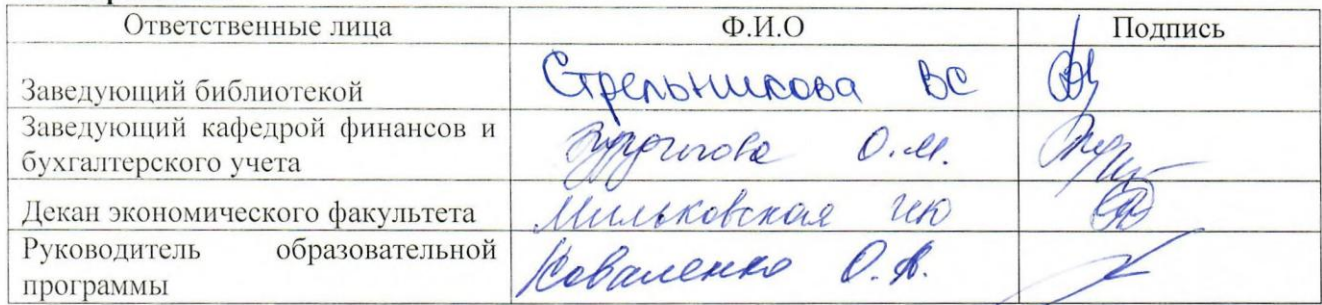 Ответственные лица Ф.И.О Подпись
Заведующий библиотекой Стрельникова ВС
Заведующий кафедрой финансов и
бухгалтерского учета О.М.
Декан экономического факультета Мильковская ИЮ
Руководитель образовательной
программы Коваленко О.А.